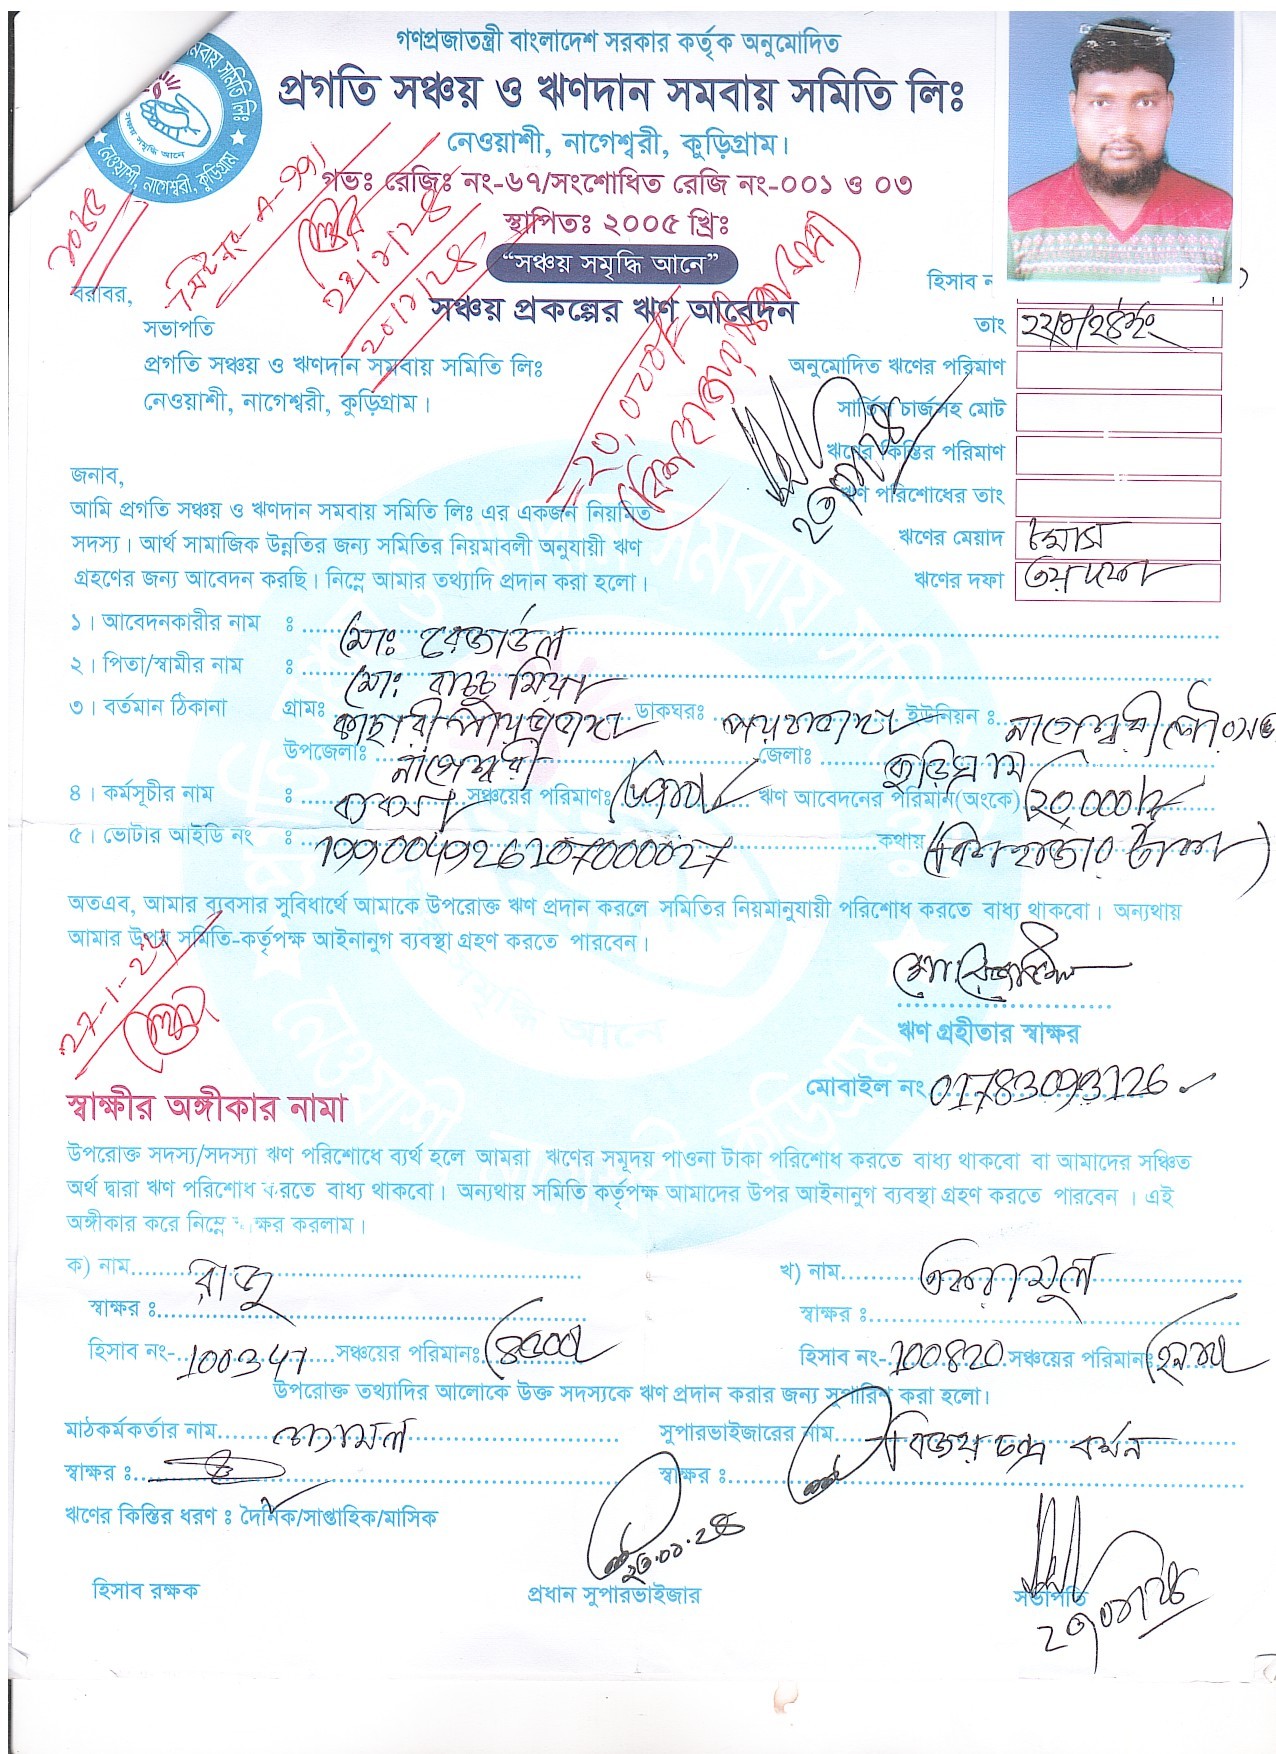 গণপ্রজাতন্ত্রী বাংলাদেশ সরকার কর্তৃক অনুমোদিত
প্রগতি সঞ্চয় ও ঋণদান সমবায় সমিতি লিঃ
নেওয়াশী, নাগেশ্বরী, কুড়িগ্রাম।
গভঃ রেজিঃ নং-৬৭/সংশোধিত রেজি নং-০০১ ও ০৩
স্থাপিতঃ ২০০৫ খ্রিঃ
“সঞ্চয় সমৃদ্ধি আনে”
সঞ্চয় প্রকল্পের ঋণ আবেদন
হিসাব ন
বরাবর,
সভাপতি
প্রগতি সঞ্চয় ও ঋণদান সমবায় সমিতি লিঃ
নেওয়াশী, নাগেশ্বরী, কুড়িগ্রাম।
তাং
অনুমোদিত ঋণের পরিমাণ
সার্ভিস চার্জসহ মোট
ঋণের কিস্তির পরিমাণ
ঋণ পরিশোধের তাং
ঋণের মেয়াদ
ঋণের দফা
২০,০০০/
জনাব,
আমি প্রগতি সঞ্চয় ও ঋণদান সমবায় সমিতি লিঃ এর একজন নিয়মিত
সদস্য। আর্থ সামাজিক উন্নতির জন্য সমিতির নিয়মাবলী অনুযায়ী ঋণ
গ্রহণের জন্য আবেদন করছি। নিম্নে আমার তথ্যাদি প্রদান করা হলো।
১। আবেদনকারীর নাম ঃ মোঃ রেজাউল
২। পিতা/স্বামীর নাম ঃ মোঃ বাচ্চু মিয়া
৩। বর্তমান ঠিকানা গ্রামঃ ডাকঘরঃ ইউনিয়ন ঃ নাগেশ্বরী পৌরসভা
উপজেলাঃ নাগেশ্বরী জেলাঃ কুড়িগ্রাম
৪। কর্মসূচীর নাম ঃ ব্যবসা সঞ্চয়ের পরিমাণঃ ঋণ আবেদনের পরিমান(অংকে) ২০,০০০/
৫। ভোটার আইডি নং ঃ 199004926207000027 কথায় (বিশ হাজার টাকা)
অতএব, আমার ব্যবসার সুবিধার্থে আমাকে উপরোক্ত ঋণ প্রদান করলে সমিতির নিয়মানুযায়ী পরিশোধ করতে বাধ্য থাকবো। অন্যথায়
আমার উপর সমিতি-কর্তৃপক্ষ আইনানুগ ব্যবস্থা গ্রহণ করতে পারবেন।
মোঃ রেজাউল
ঋণ গ্রহীতার স্বাক্ষর
মোবাইল নং 01783093126
স্বাক্ষীর অঙ্গীকার নামা
উপরোক্ত সদস্য/সদস্যা ঋণ পরিশোধে ব্যর্থ হলে আমরা ঋণের সমূদয় পাওনা টাকা পরিশোধ করতে বাধ্য থাকবো বা আমাদের সঞ্চিত
অর্থ দ্বারা ঋণ পরিশোধ করতে বাধ্য থাকবো। অন্যথায় সমিতি কর্তৃপক্ষ আমাদের উপর আইনানুগ ব্যবস্থা গ্রহণ করতে পারবেন । এই
অঙ্গীকার করে নিম্নে স্বাক্ষর করলাম।
ক) নাম রাজু খ) নাম একরামুল
স্বাক্ষর ঃ স্বাক্ষর ঃ
হিসাব নং- 100347 সঞ্চয়ের পরিমানঃ হিসাব নং- 100820 সঞ্চয়ের পরিমানঃ
উপরোক্ত তথ্যাদির আলোকে উক্ত সদস্যকে ঋণ প্রদান করার জন্য সুপারিশ করা হলো।
মাঠকর্মকর্তার নাম শ্যামল সুপারভাইজারের নাম বিজয় চন্দ্র বর্মন
স্বাক্ষর ঃ স্বাক্ষর ঃ
ঋণের কিস্তির ধরণ ঃ দৈনিক/সাপ্তাহিক/মাসিক
হিসাব রক্ষক প্রধান সুপারভাইজার সভাপতি